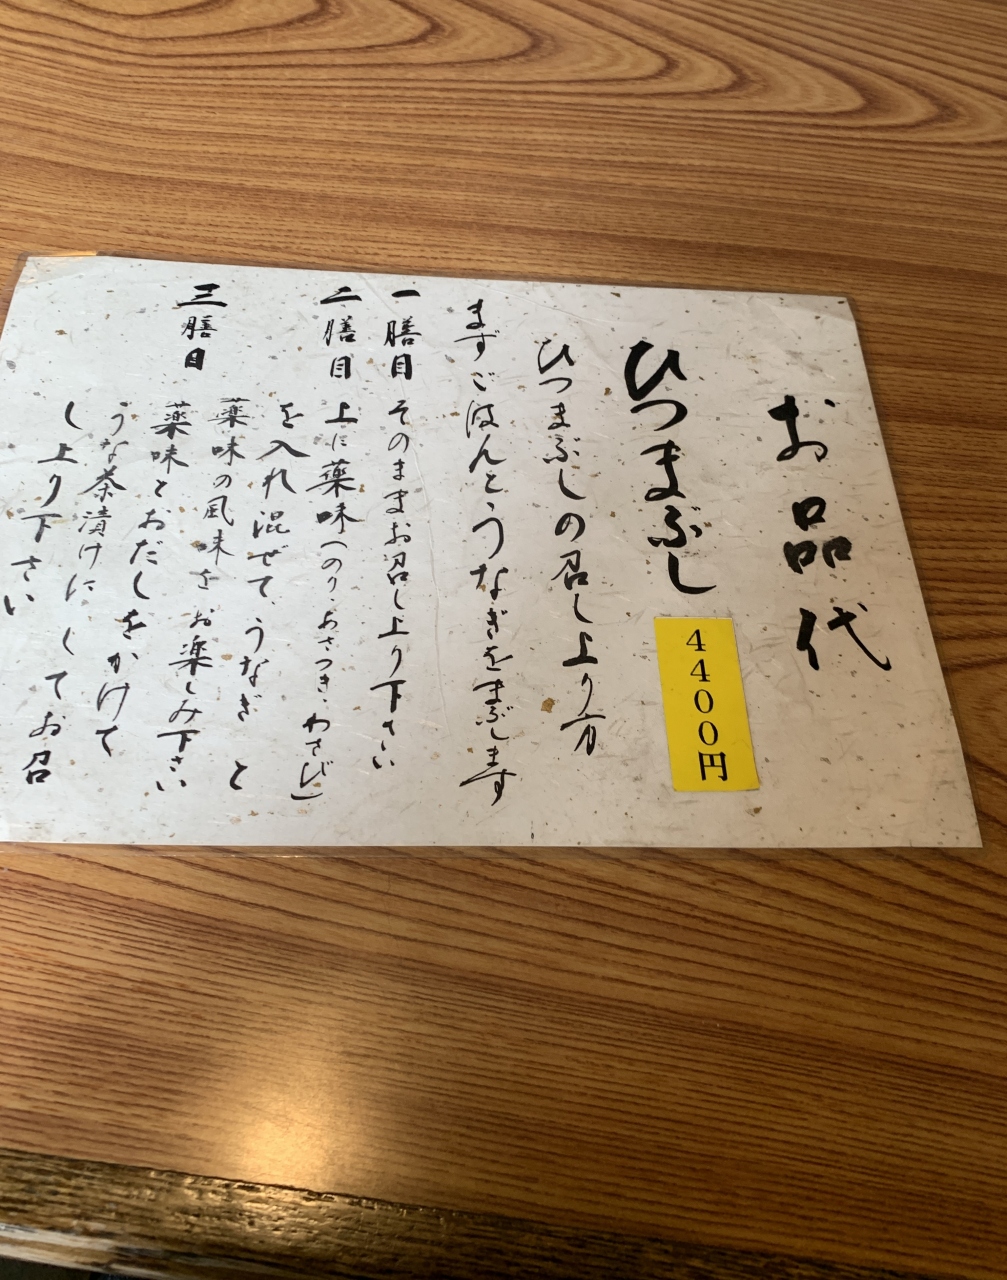 お品代
ひつまぶし
4400円
ひつまぶしの召し上り方
まずごはんとうなぎをまぶします
一膳目 そのままお召し上り下さい
二膳目 上に薬味(のり、あさつき、わさび)
を入れ混ぜて、うなぎと
薬味の風味をお楽しみ下さい
三膳目 薬味とおだしをかけて
うな茶漬けにしてお召
し上り下さい